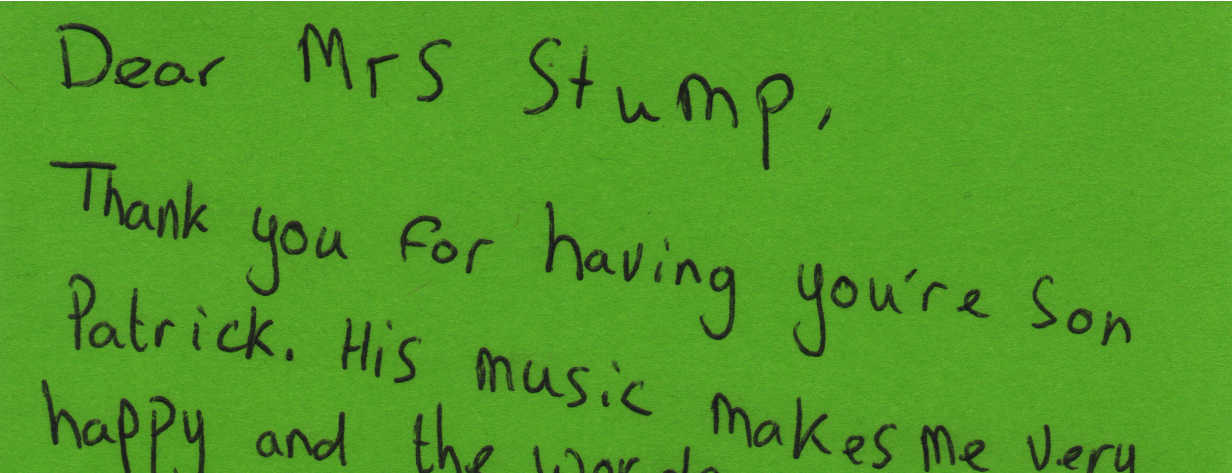 Dear Mrs Stump,
Thank you for having you're son
Patrick. His music makes me very
happy and the words